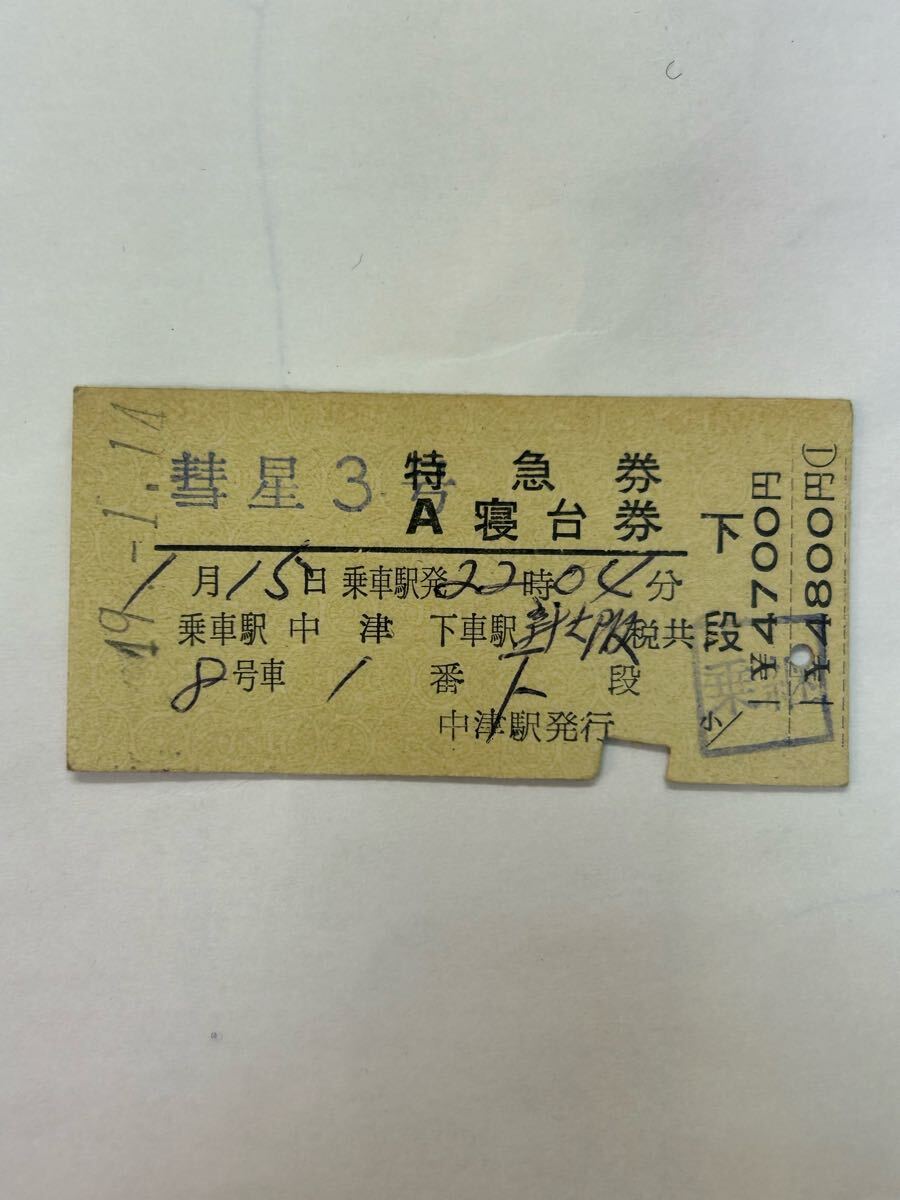 49.-1.14
彗星3号
特急券
A寝台券
1月15日 乗車駅発22時04分
乗車駅 中津 下車駅 新大阪 税共
8号車 1番下段
中津駅発行
下段
¥4700円
¥4800円
乗
小